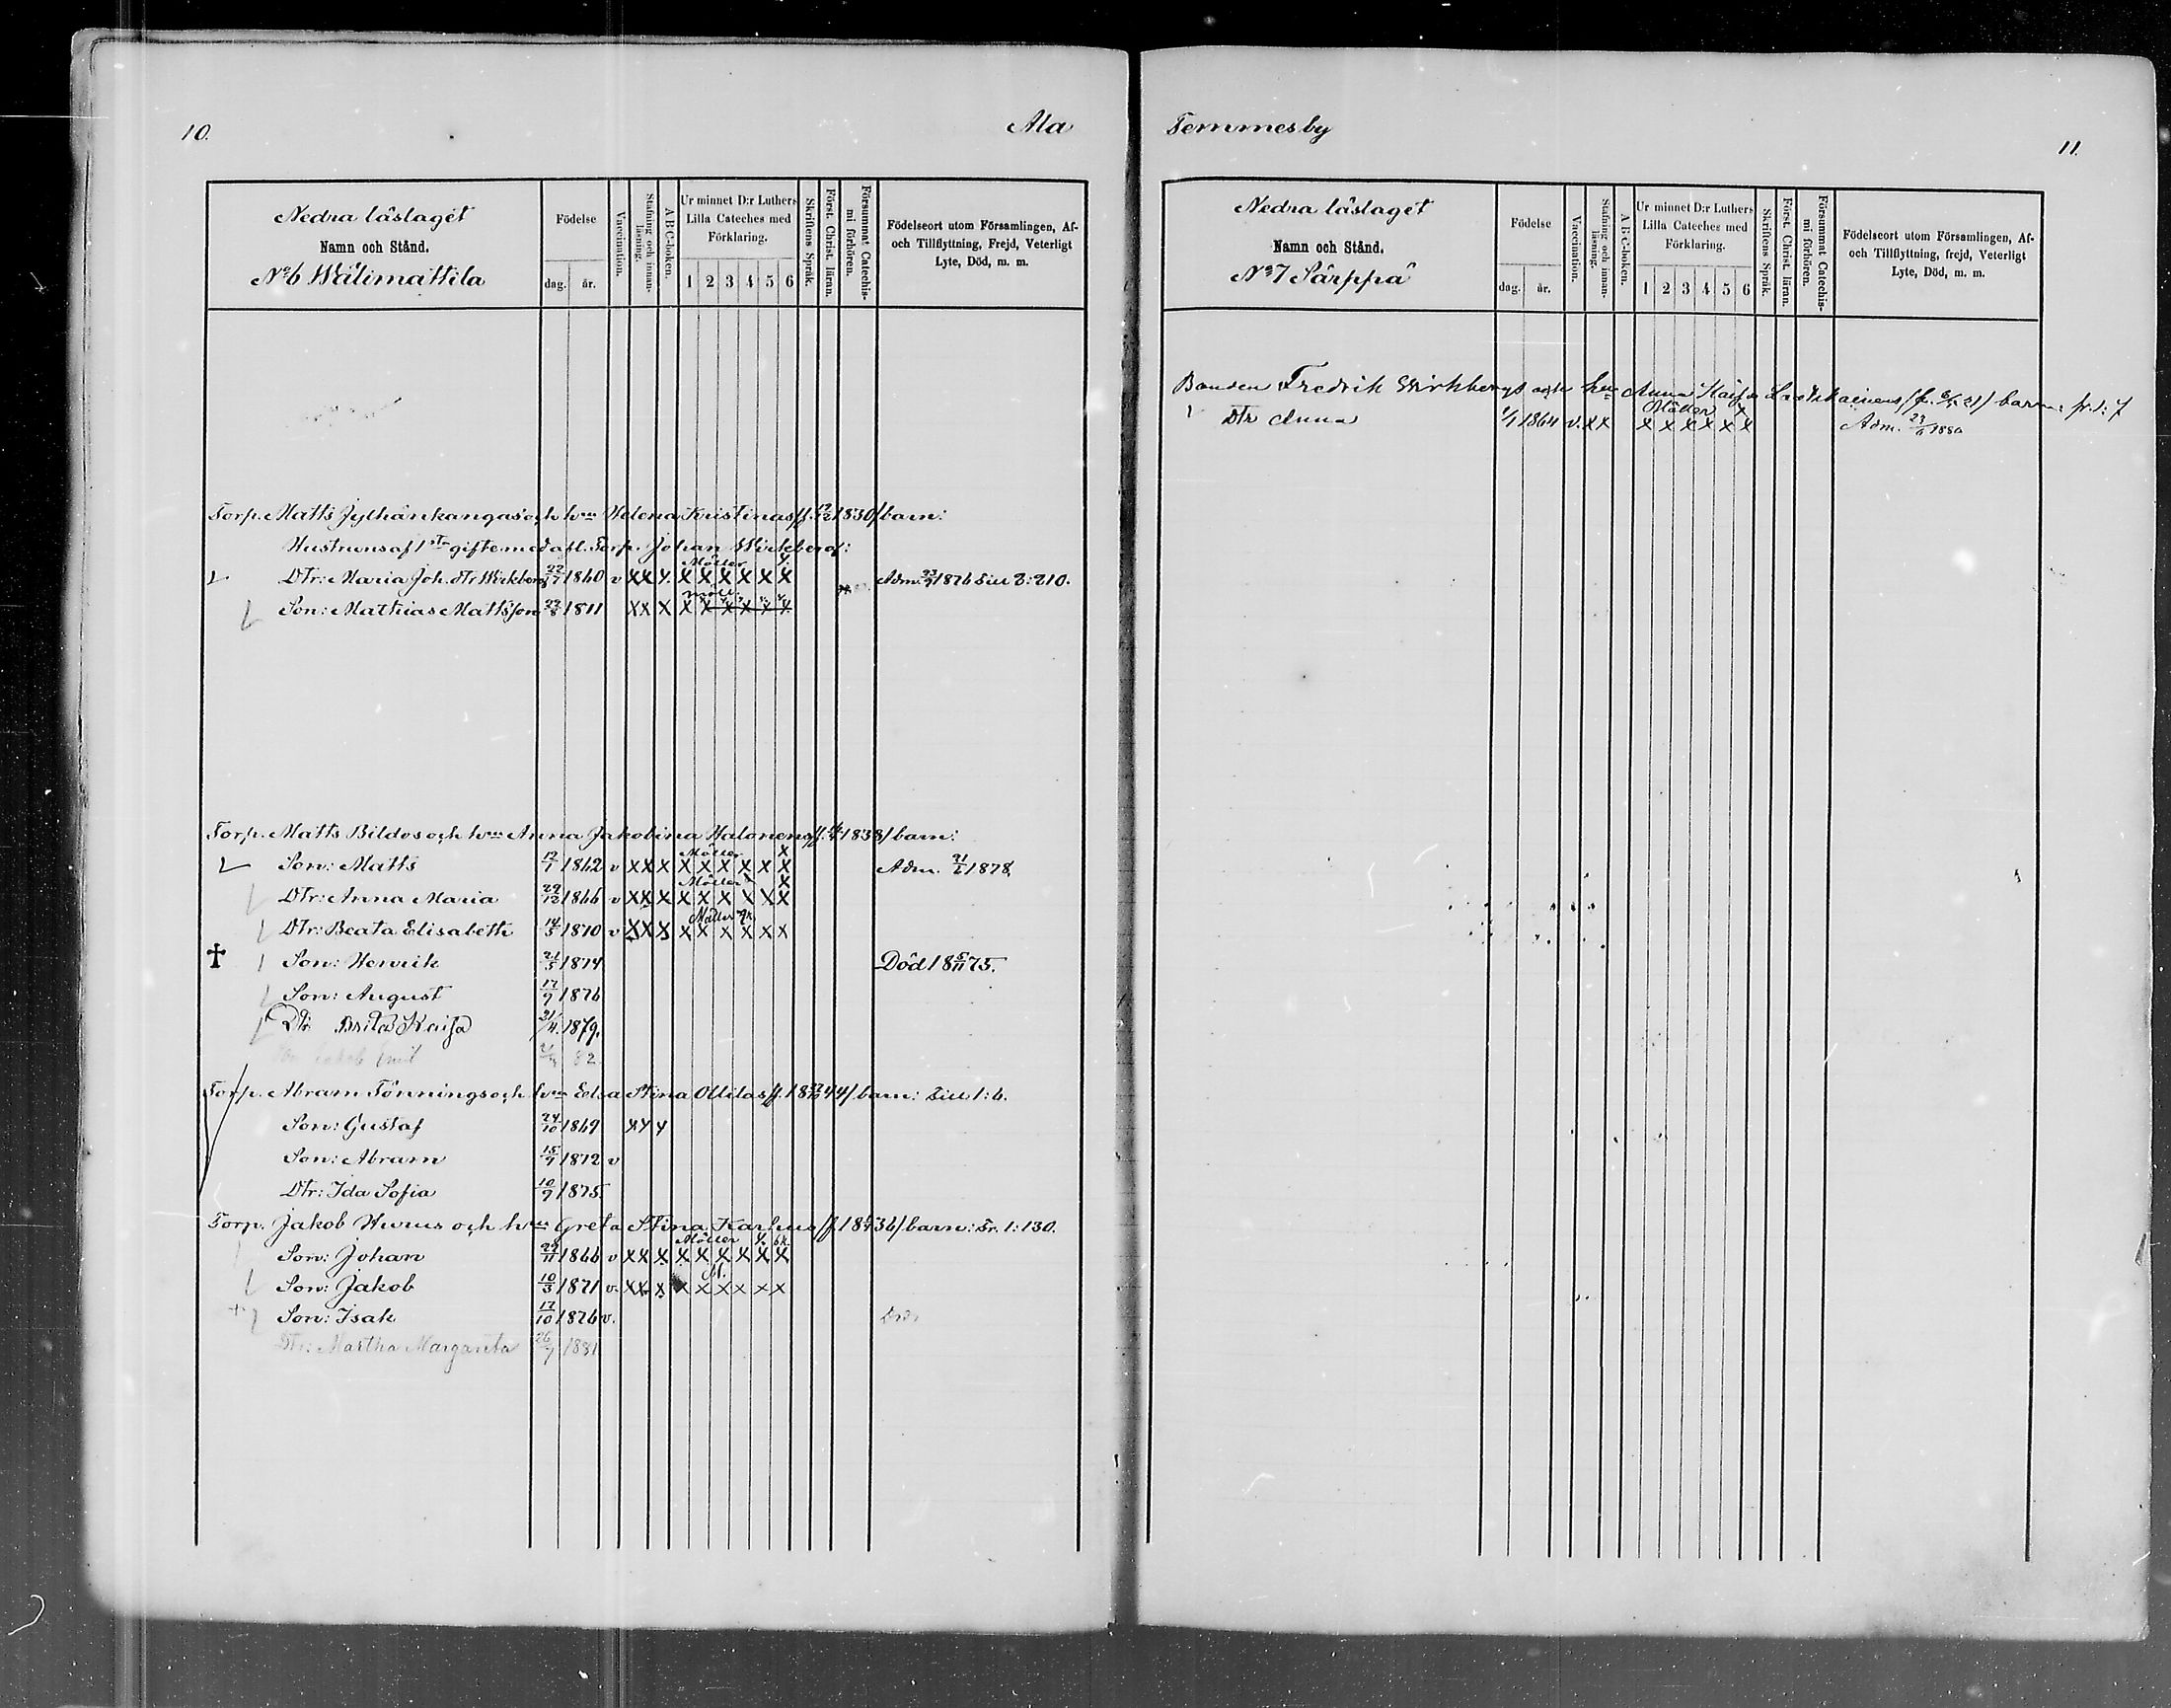 10.
Ala
Nedra läslaget
Namn och Stånd.
No 6 Wälimattila
Födelse
dag. år.
Vaccination.
Stafning och innanläsning.
A B C-boken.
Ur minnet D:r Luthers Lilla Cateches med Förklaring.
1 2 3 4 5 6
Skriftens Språk.
Först. Christ. läran.
Försummat Catechismi förhören.
Födelseort utom Församlingen, Af- och Tillflyttning, Frejd, Veterligt Lyte, Död, m. m.
Torp. Matts Jylhänkangas och hun Helena Kristinas 1830/ barn:
Hustruns af 1sta gifte med afl. Torp. Johan Wirkberg:
Dtr: Maria Joh. dtr Wirkberg 1860 v X X X Möller X X X X X X Adm. 1876 Till 2:210.
Son: Mathias Mattsson X X X Möll.
Torp. Matts Bildos och hun Anna Jakobina Halonens 1838/ barn:
Son: Matts 12/7 1862 v X X X Möller X X X X X X Adm. 1878
Dtr: Anna Maria 29/12 1866 v X X X Möller X X X X X X
Dtr: Beata Elisabeth 14/3 1870 v X X X Möller X X X X X X
† Son: Henrik 21/5 1874 Död 18 5/11 75.
Son: August 17/9 1876
Dtr Brita Kaisa 21/4 1879.
82
Torp. Abram Tönnings och hun Edsa Stina Ollilas 44/ barn: Till 1:6.
Son: Gustaf 24/10 1869
Son: Abram 15/9 1872 v
Dtr: Ida Sofia 10/9 1875
Torp. Jakob Hurus och hun Greta Stina Karhus 36/ barn: Fr. 1:130.
Son: Johan 29/11 1866 v X X X Möller X X X X X X
Son: Jakob 10/3 1871 v. X X X M. X X X X X X
Son: Isak 17/10 1876 v.
Dtr: Martha Margareta 26/9 1881
Temmesby
11.
Nedra läslaget
Namn och Stånd.
No 7 Särppä
Födelse
dag. år.
Vaccination.
Stafning och innanläsning.
A B C-boken.
Ur minnet D:r Luthers Lilla Cateches med Förklaring.
1 2 3 4 5 6
Skriftens Språk.
Först. Christ. läran.
Försummat Catechismi förhören.
Födelseort utom Församlingen, Af- och Tillflyttning, frejd, Veterligt Lyte, Död, m. m.
Bonden Fredrik Wirkbergs och hu Anna Kaisa barn: fr. 1:7
Dtr Anna 1/1 1864 v. X X Möller X X X X X X Adm. 1880